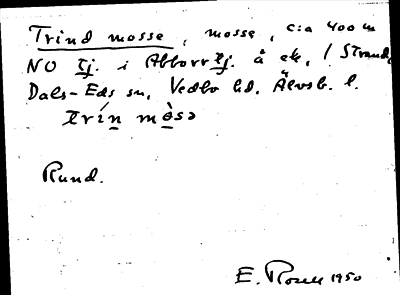 Trind mosse, mosse, c:a 400 m
NO tj. i Abborrtj. å ek. / Strand,
Dals-Eds sn, Vedbo hd. Älvsb. l.
trín mòsə
Rund.
E. 1950